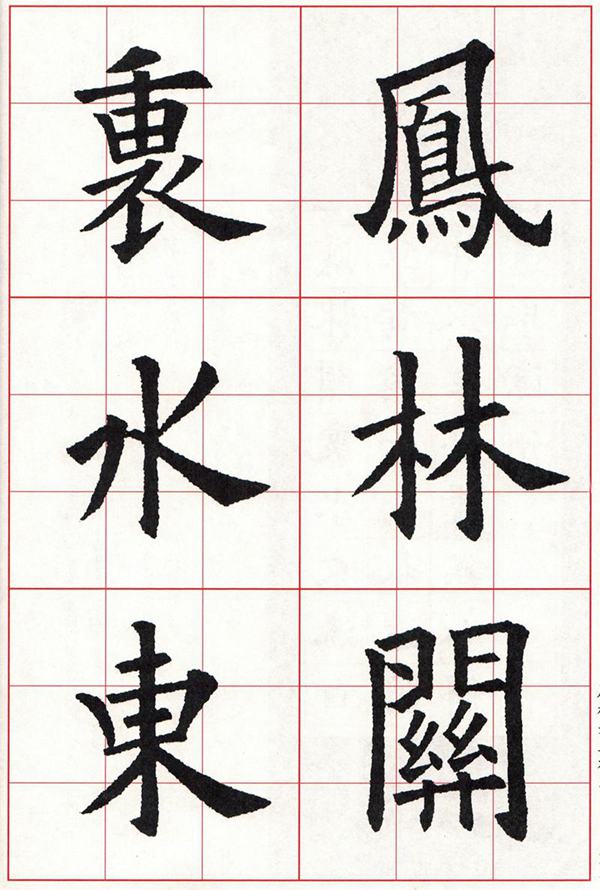 鳳林關
裏水東